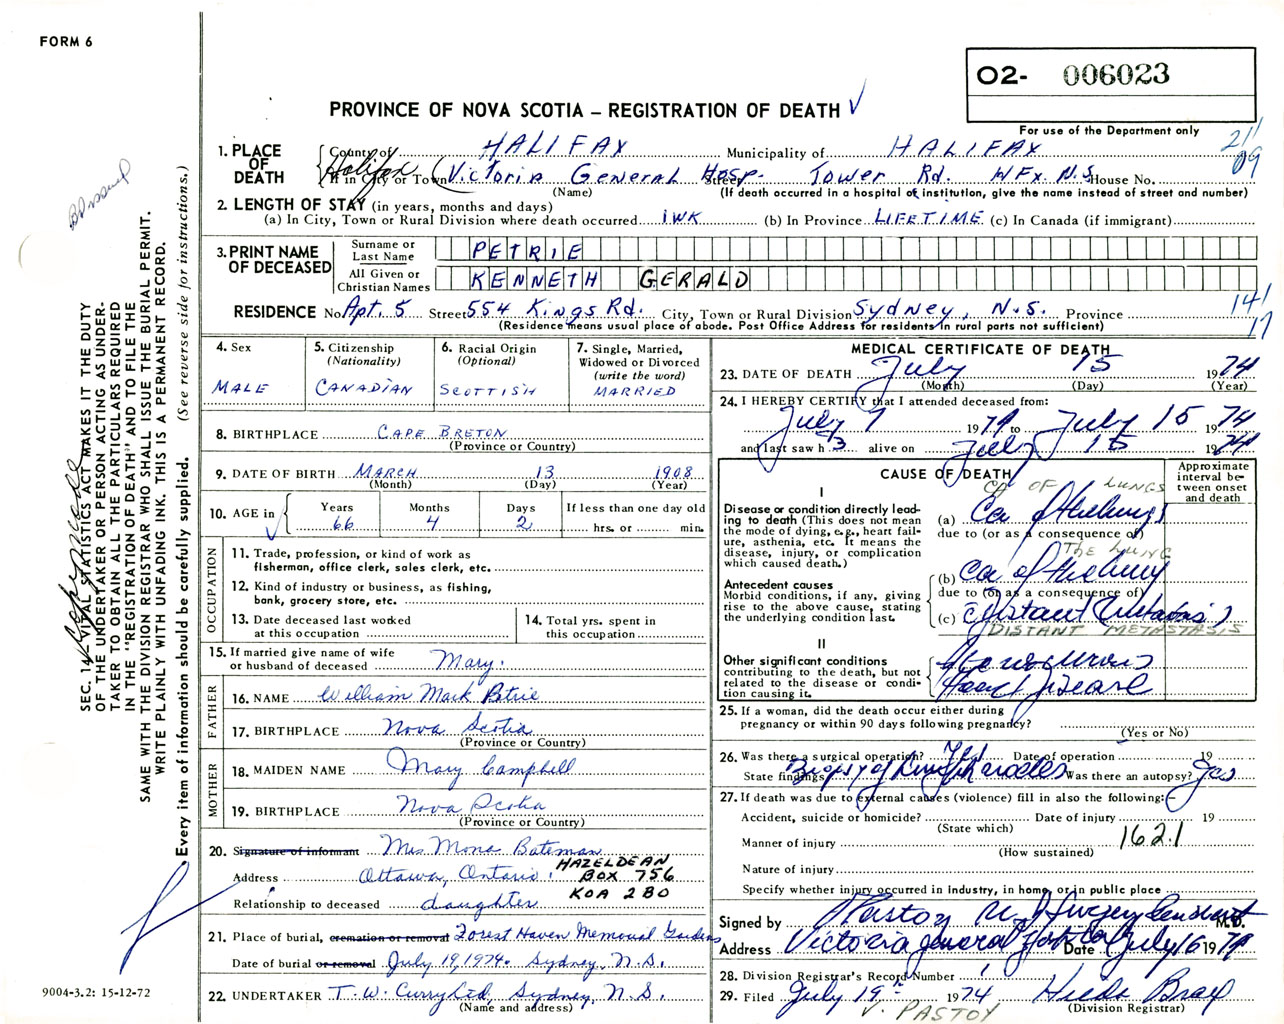 FORM 6
O2- 006023
PROVINCE OF NOVA SCOTIA – REGISTRATION OF DEATH
For use of the Department only
1. PLACE OF DEATH
County of HALIFAX Municipality of HALIFAX
21/09
Halifax
If in City or Town (Victoria General Hosp. Street Tower Rd. HFx N.S. House No.
(Name) (If death occurred in a hospital or institution, give the name instead of street and number)
2. LENGTH OF STAY (in years, months and days)
(a) In City, Town or Rural Division where death occurred 1WK (b) In Province LIFETIME (c) In Canada (if immigrant)
3. PRINT NAME OF DECEASED
Surname or Last Name PETRIE
All Given or Christian Names KENNETH GERALD
RESIDENCE No. Apt. 5 Street 554 Kings Rd. City, Town or Rural Division Sydney, N.S. Province
14/17
(Residence means usual place of abode. Post Office Address for residents in rural parts not sufficient)
4. Sex
MALE
5. Citizenship (Nationality)
CANADIAN
6. Racial Origin (Optional)
SCOTTISH
7. Single, Married, Widowed or Divorced (write the word)
MARRIED
8. BIRTHPLACE CAPE BRETON
(Province or Country)
9. DATE OF BIRTH MARCH 13 1908
(Month) (Day) (Year)
10. AGE in Years Months Days If less than one day old
66 4 2 hrs. or min.
OCCUPATION
11. Trade, profession, or kind of work as fisherman, office clerk, sales clerk, etc.
12. Kind of industry or business, as fishing, bank, grocery store, etc.
13. Date deceased last worked at this occupation
14. Total yrs. spent in this occupation
15. If married give name of wife or husband of deceased Mary.
FATHER
16. NAME William Mark Petrie
17. BIRTHPLACE Nova Scotia
(Province or Country)
MOTHER
18. MAIDEN NAME Mary Campbell
19. BIRTHPLACE Nova Scotia
(Province or Country)
20. Signature of informant Mrs Mona Bateman
Address Ottawa, Ontario. HAZELDEAN
BOX 756
KOA 2BO
Relationship to deceased daughter
21. Place of burial, cremation or removal Forest Haven Memorial Gardens
Date of burial or removal July 19, 1974. Sydney, N.S.
22. UNDERTAKER T.W. Curry Ltd, Sydney, N.S.
(Name and address)
MEDICAL CERTIFICATE OF DEATH
23. DATE OF DEATH July 15 1974
(Month) (Day) (Year)
24. I HEREBY CERTIFY that I attended deceased from:
July 7 1974 to July 15 1974
and last saw h alive on July 15 1974
CAUSE OF DEATH
Approximate interval between onset and death
I
Disease or condition directly leading to death (This does not mean the mode of dying, e.g., heart failure, asthenia, etc. It means the disease, injury, or complication which caused death.)
CA OF LUNGS
(a) Ca of the lungs
due to (or as a consequence of)
THE LUNG
Antecedent causes
Morbid conditions, if any, giving rise to the above cause, stating the underlying condition last.
(b) Ca of the lung
due to (or as a consequence of)
(c) Distant Metastasis
DISTANT METASTASIS
II
Other significant conditions contributing to the death, but not related to the disease or condition causing it.
Heart Disease
25. If a woman, did the death occur either during pregnancy or within 90 days following pregnancy?
(Yes or No)
26. Was there a surgical operation? Yes Date of operation 19
State findings Biopsy of Lymph nodes Was there an autopsy? Yes
27. If death was due to external causes (violence) fill in also the following:–
Accident, suicide or homicide? Date of injury 19
(State which)
Manner of injury 162.1
(How sustained)
Nature of injury
Specify whether injury occurred in industry, in home, or in public place
Signed by Pastoy M.D.
Address Victoria General Hospital Date July 16 1974
28. Division Registrar's Record Number 1
29. Filed July 19th 1974 Hilda Bray
(Division Registrar)
V. PASTOY
SEC. 14 – VITAL STATISTICS ACT MAKES IT THE DUTY
OF THE UNDERTAKER OR PERSON ACTING AS UNDER-
TAKER TO OBTAIN ALL THE PARTICULARS REQUIRED
IN THE "REGISTRATION OF DEATH" AND TO FILE THE
SAME WITH THE DIVISION REGISTRAR WHO SHALL ISSUE THE BURIAL PERMIT.
WRITE PLAINLY WITH UNFADING INK. THIS IS A PERMANENT RECORD.
Every item of information should be carefully supplied. (See reverse side for instructions.)
9004-3.2: 15-12-72